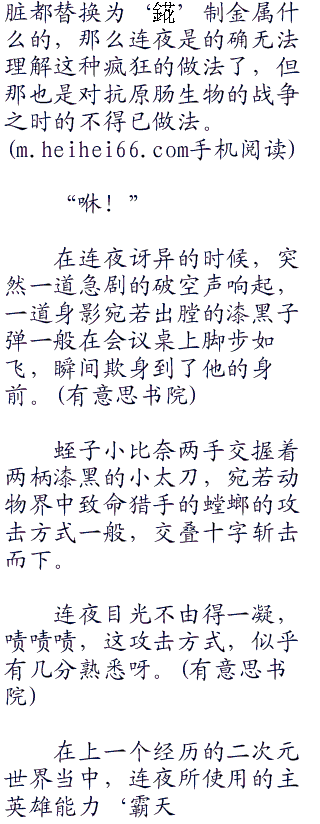 脏都替换为‘錵’制金属什
么的，那么连夜是的确无法
理解这种疯狂的做法了，但
那也是对抗原肠生物的战争
之时的不得已做法。
(m.heihei66.com手机阅读)
“咻！”
在连夜讶异的时候，突
然一道急剧的破空声响起，
一道身影宛若出膛的漆黑子
弹一般在会议桌上脚步如
飞，瞬间欺身到了他的身
前。(有意思书院)
蛭子小比奈两手交握着
两柄漆黑的小太刀，宛若动
物界中致命猎手的螳螂的攻
击方式一般，交叠十字斩击
而下。
连夜目光不由得一凝，
啧啧啧，这攻击方式，似乎
有几分熟悉呀。(有意思书
院)
在上一个经历的二次元
世界当中，连夜所使用的主
英雄能力‘霸天